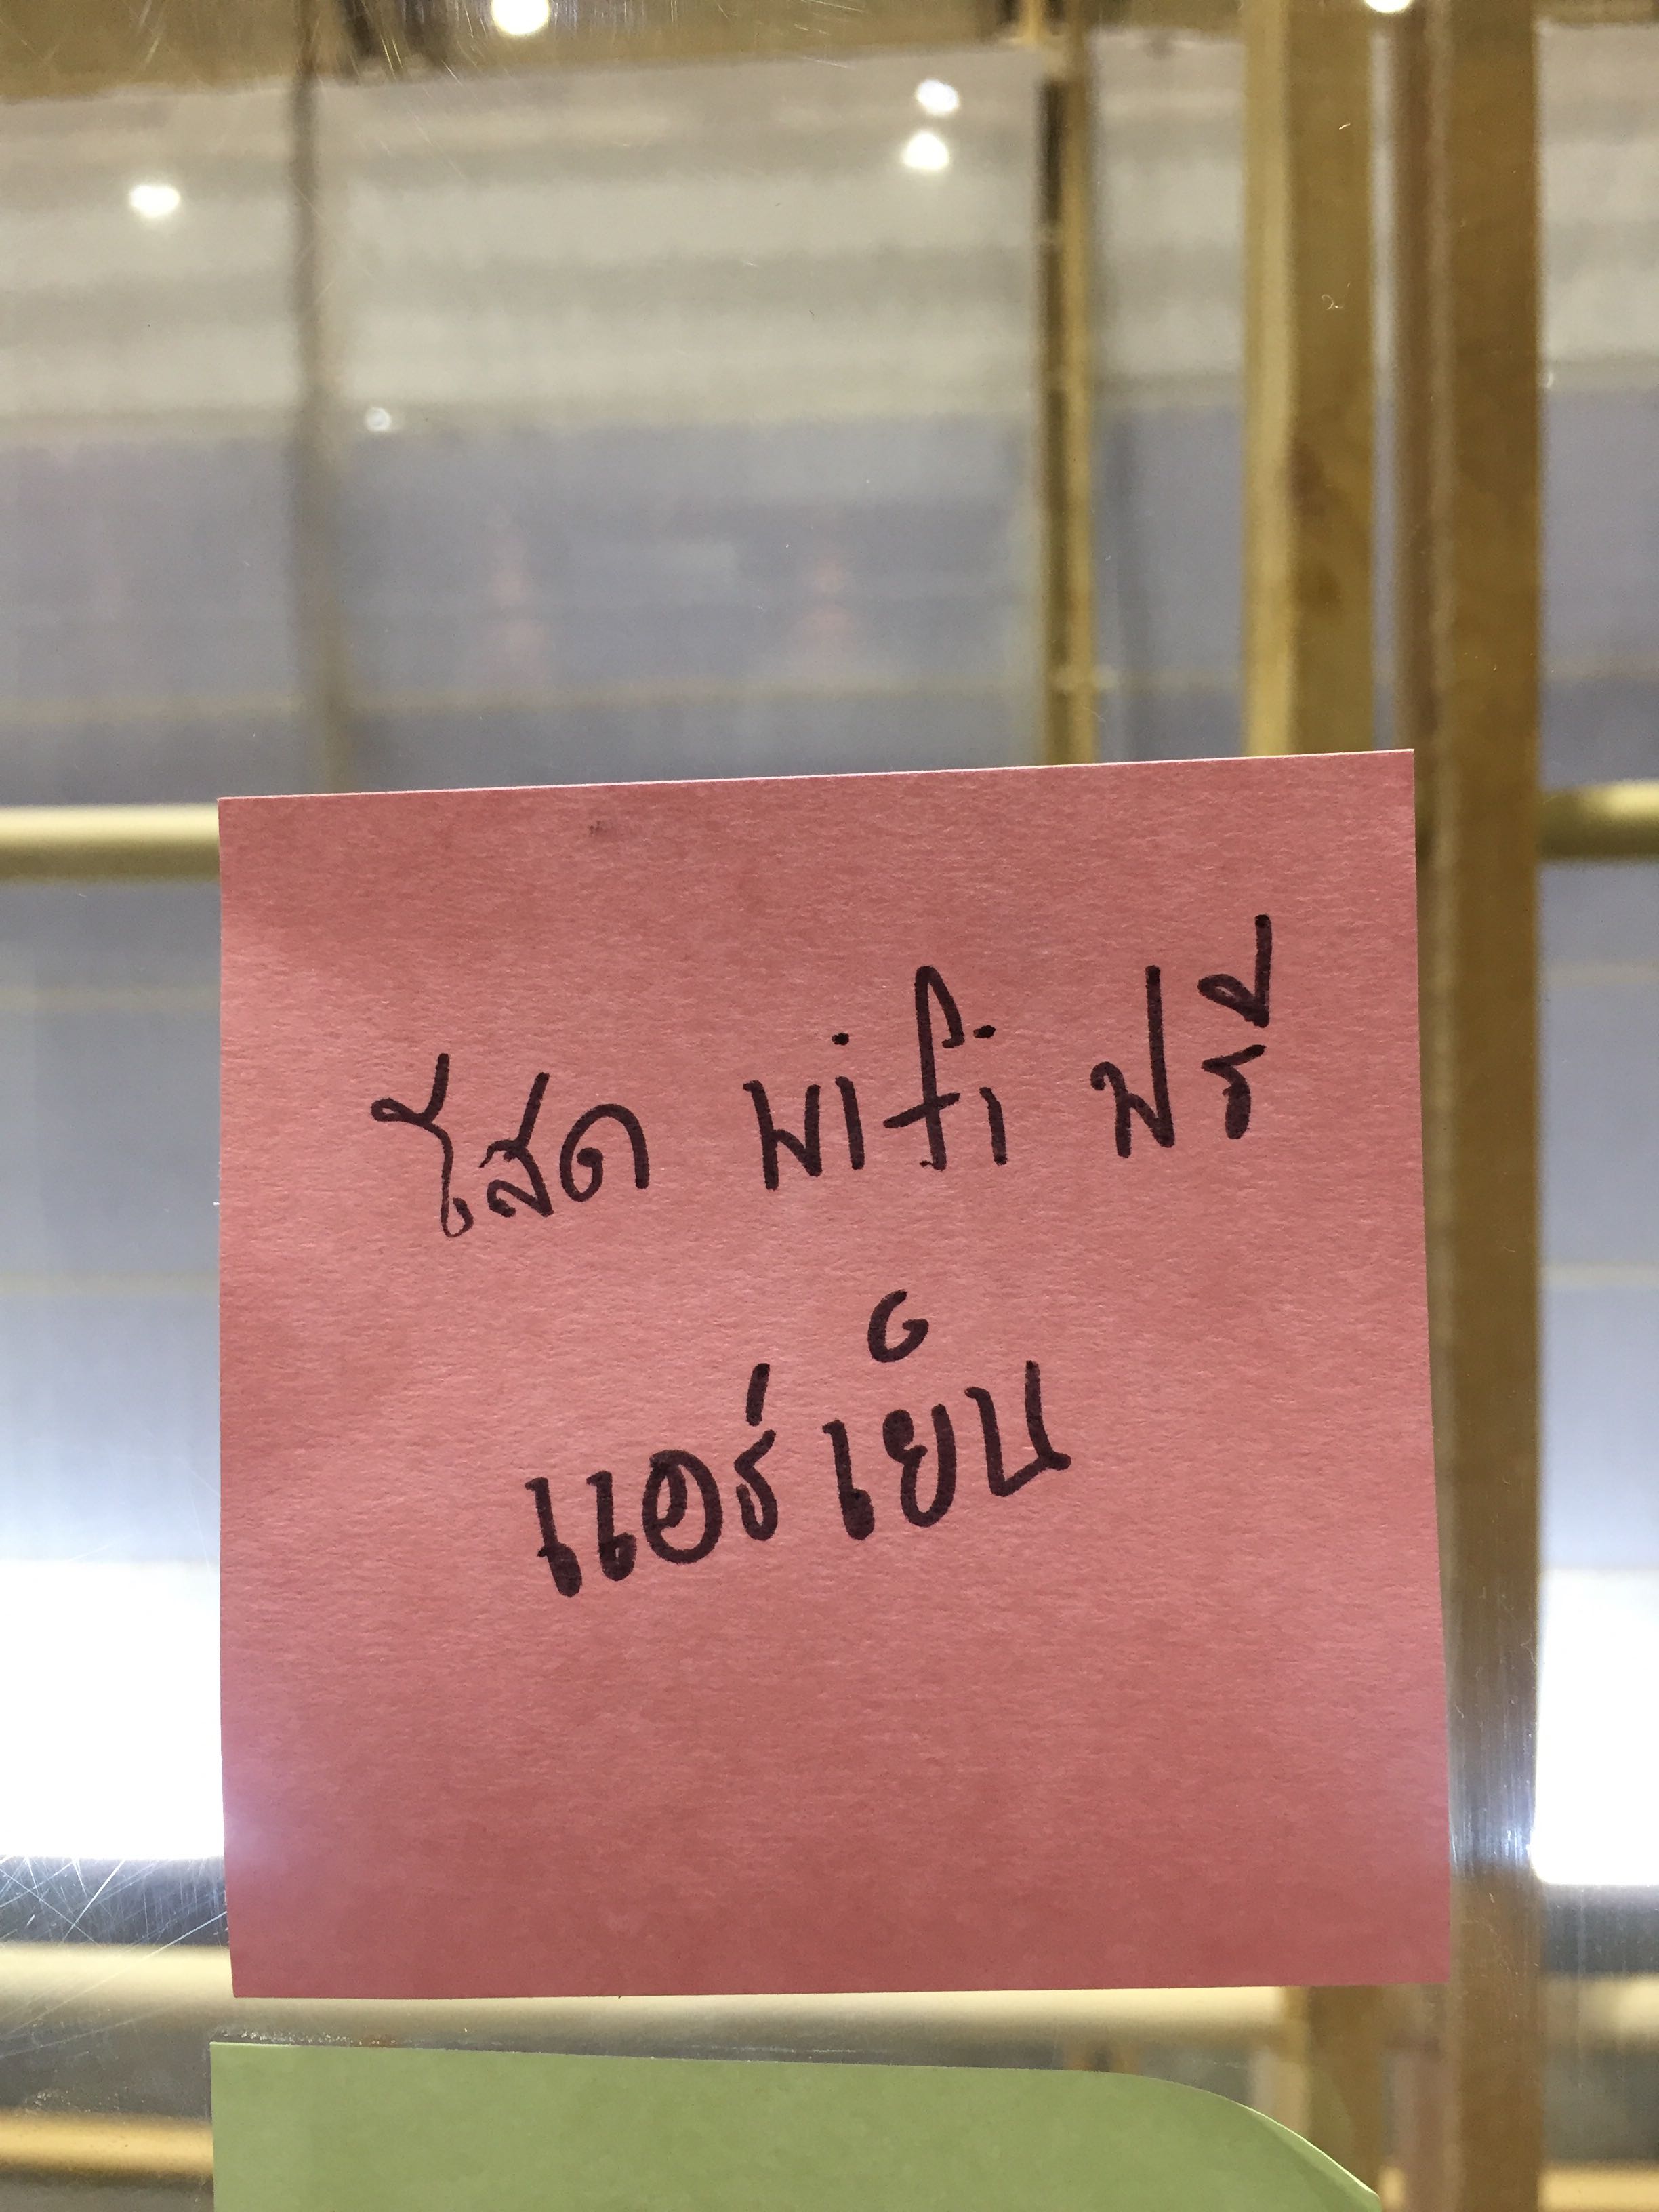 โสด wifi ฟรี
แอร์เย็น